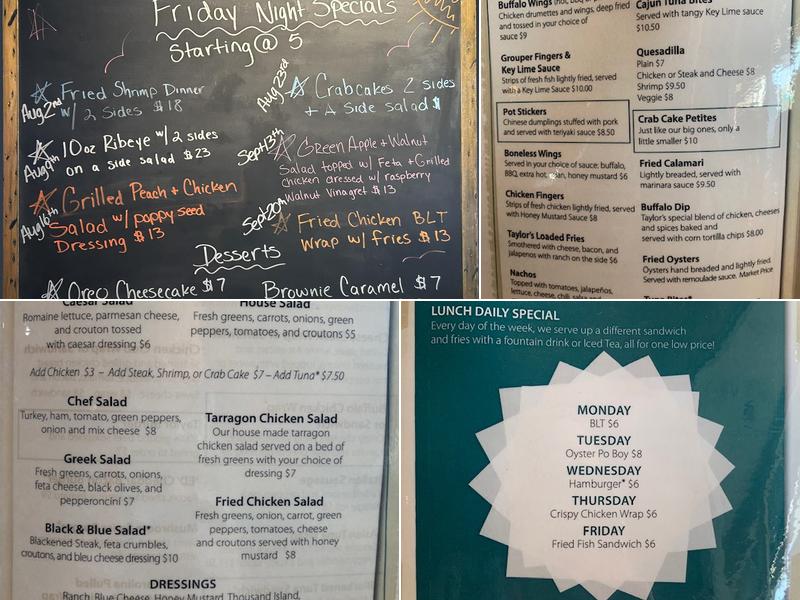 Friday Night Specials
Starting @ 5
Aug 2nd
Fried Shrimp Dinner
w/ 2 Sides $18
Aug 9th
10oz Ribeye w/ 2 sides
on a side salad $23
Aug 16th
Grilled Peach + Chicken
Salad w/ poppy seed
Dressing $13
Aug 23rd
Crabcakes 2 sides
+ A Side salad $
Sept 13th
Green Apple + Walnut
Salad topped w/ Feta + Grilled
chicken dressed w/ raspberry
Walnut Vinagret $13
Sept 20th
Fried Chicken BLT
Wrap w/ fries $13
Desserts
Oreo Cheesecake $7
Brownie Caramel $7
Buffalo Wings
Chicken drumettes and wings, deep fried
and tossed in your choice of
sauce $9
Grouper Fingers &
Key Lime Sauce
Strips of fresh fish lightly fried, served
with a Key Lime Sauce $10.00
Pot Stickers
Chinese dumplings stuffed with pork
and served with teriyaki sauce $8.50
Boneless Wings
Served in your choice of sauce: buffalo,
BBQ, extra hot, asian, honey mustard $6
Chicken Fingers
Strips of fresh chicken lightly fried, served
with Honey Mustard Sauce $8
Taylor's Loaded Fries
Smothered with cheese, bacon, and
jalapenos with ranch on the side $6
Nachos
Topped with tomatoes, jalapeños,
lettuce, cheese, chili, salsa and
Cajun Tuna Bites
Served with tangy Key Lime sauce
$10.50
Quesadilla
Plain $7
Chicken or Steak and Cheese $8
Shrimp $9.50
Veggie $8
Crab Cake Petites
Just like our big ones, only a
little smaller $10
Fried Calamari
Lightly breaded, served with
marinara sauce $9.50
Buffalo Dip
Taylor's special blend of chicken, cheeses
and spices baked and
served with corn tortilla chips $8.00
Fried Oysters
Oysters hand breaded and lightly fried.
Served with remoulade sauce. Market Price
Tuna Bites*
Caesar Salad
Romaine lettuce, parmesan cheese,
and crouton tossed
with caesar dressing $6
House Salad
Fresh greens, carrots, onions, green
peppers, tomatoes, and croutons $5
Add Chicken $3 – Add Steak, Shrimp, or Crab Cake $7 – Add Tuna* $7.50
Chef Salad
Turkey, ham, tomato, green peppers,
onion and mix cheese $8
Greek Salad
Fresh greens, carrots, onions,
feta cheese, black olives, and
pepperoncini $7
Black & Blue Salad*
Blackened Steak, feta crumbles,
croutons, and bleu cheese dressing $10
Tarragon Chicken Salad
Our house made tarragon
chicken salad served on a bed of
fresh greens with your choice of
dressing $7
Fried Chicken Salad
Fresh greens, onion, carrot, green
peppers, tomatoes, cheese
and croutons served with honey
mustard $8
DRESSINGS
Ranch, Blue Cheese, Honey Mustard, Thousand Island,
LUNCH DAILY SPECIAL
Every day of the week, we serve up a different sandwich
and fries with a fountain drink or Iced Tea, all for one low price!
MONDAY
BLT $6
TUESDAY
Oyster Po Boy $8
WEDNESDAY
Hamburger* $6
THURSDAY
Crispy Chicken Wrap $6
FRIDAY
Fried Fish Sandwich $6